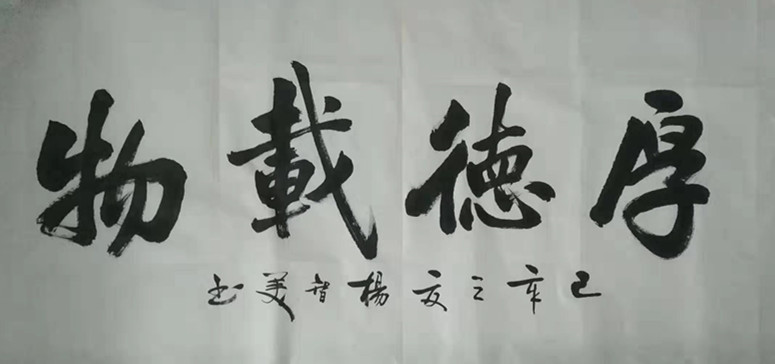 厚德載物
己年之友楊智美书